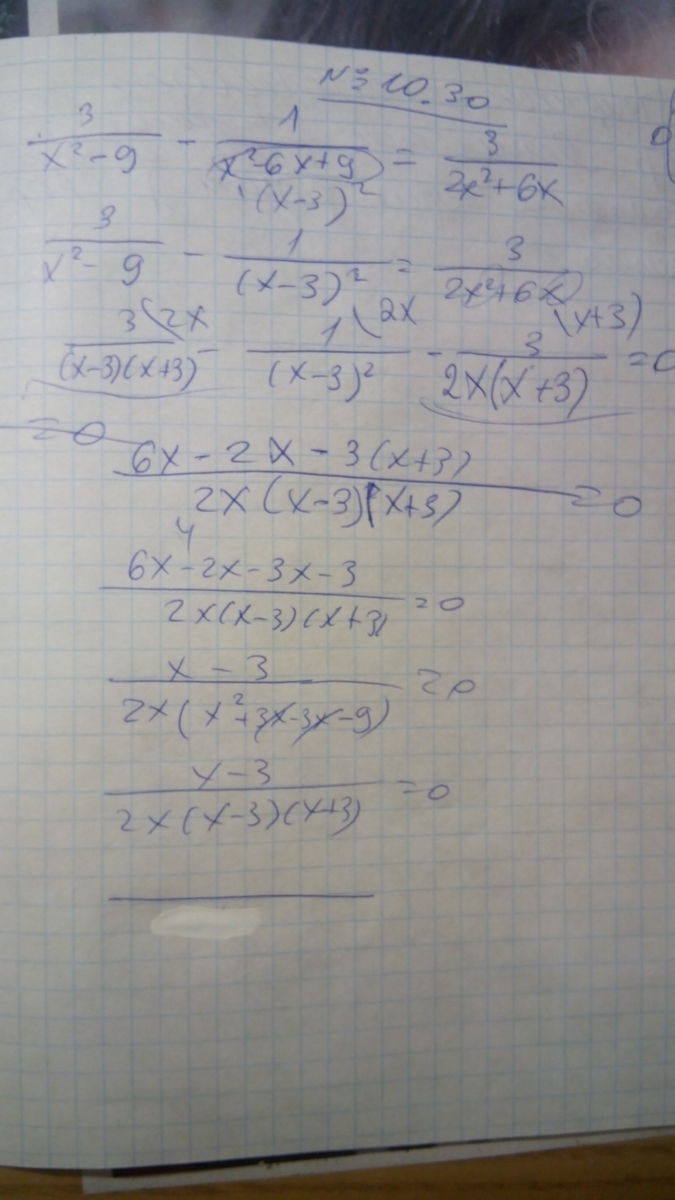 № 10.30
3/(x²-9) - 1/(x²-6x+9) = 3/(2x²+6x)
(x-3)²
3/(x²-9) - 1/(x-3)² = 3/(2x²+6x)
3\2x/((x-3)(x+3)) - 1\2x/(x-3)² - 3\(x+3)/(2x(x+3)) = 0
= 0
(6x-2x-3(x+3))/(2x(x-3)(x+3)) = 0
4
(6x-2x-3x-3)/(2x(x-3)(x+3)) = 0
(x-3)/(2x(x²+3x-3x-9)) = 0
(x-3)/(2x(x-3)(x+3)) = 0